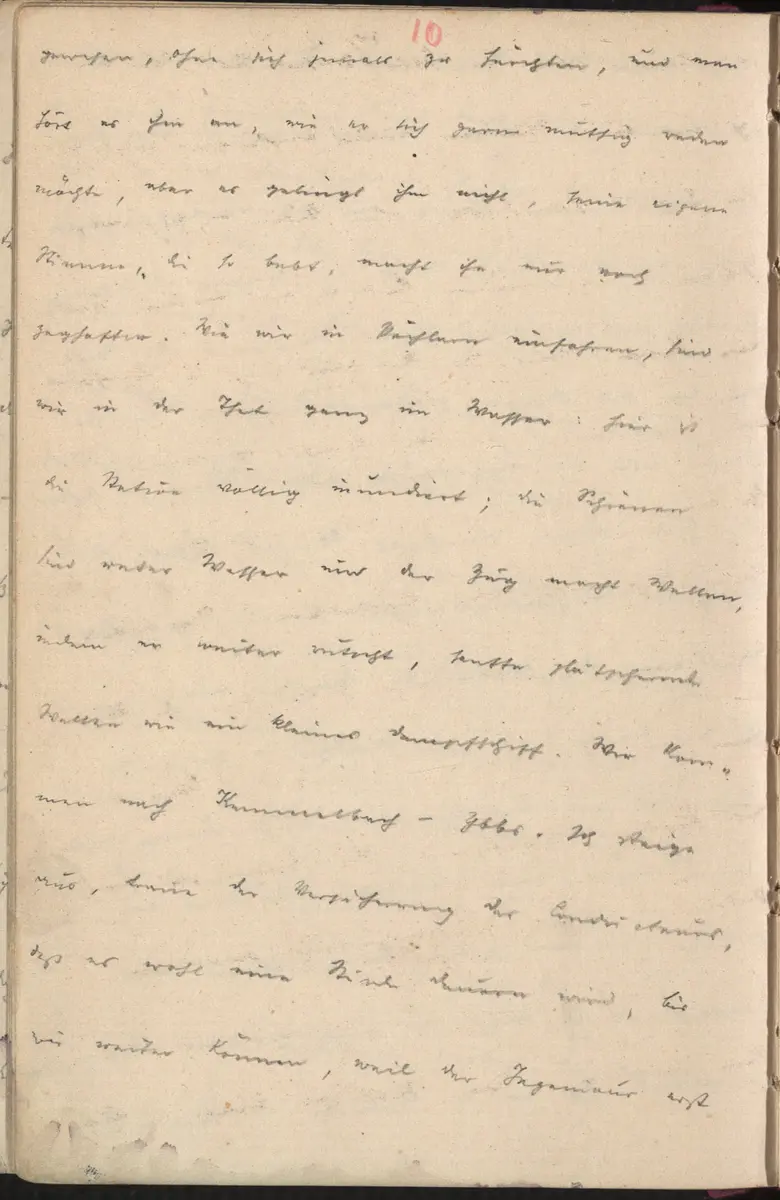 10
gewesen, ohne sich jemals zu fürchten, und man
hört es ihm an, wie er sich gern muthig reden
möchte, aber es gelingt ihm nicht, seine eigene
Stimme, die so bebt, macht ihn nur noch
zaghafter. Wie wir in Pöchlarn einfahren, sind
wir in der That ganz im Wasser: hier ist
die Station völlig inundiert; die Schienen
sind unter Wasser und der Zug macht Wellen,
indem er weiter rutscht, sanfte plätschernde
Wellen wie ein kleines Dampfschiff. Wir kom-
men nach Kemmelbach - Ybbs. Ich steige
aus, traue der Versicherung des Conducteurs,
daß es wohl eine Stunde dauern wird, bis
wir weiter können, weil der Ingenieur erst